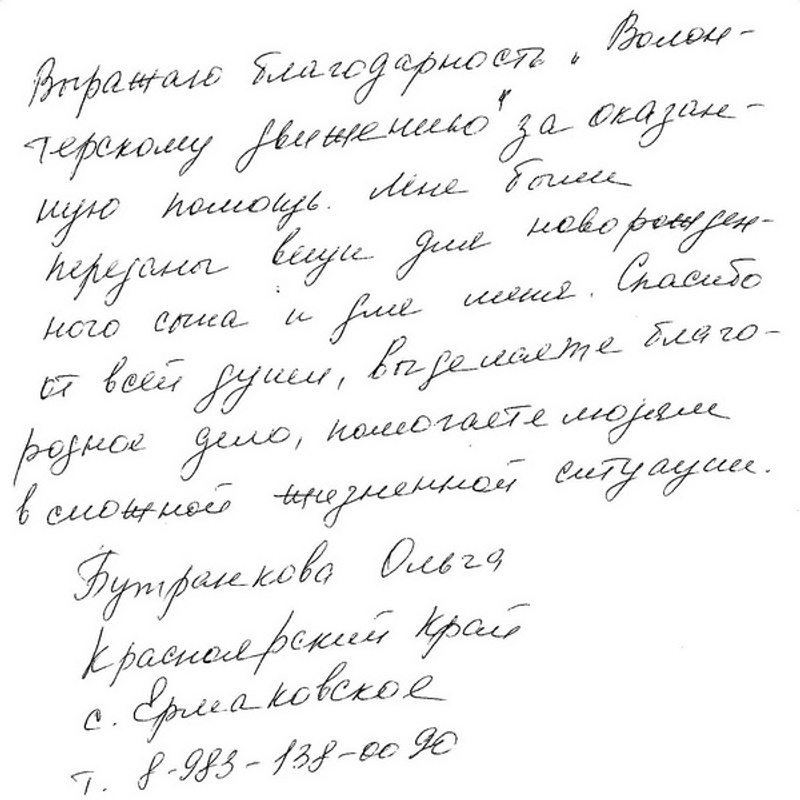 Выражаю благодарность „Волон-
терскому движению" за оказан-
ную помощь. Мне были
переданы вещи для новорожден-
ного сына и для меня. Спасибо
от всей души, вы делаете благо-
родное дело, помогаете людям
в сложной жизненной ситуации.
Бутранкова Ольга
Красноярский край
с. Ермаковское
т. 8-983-138-00 90